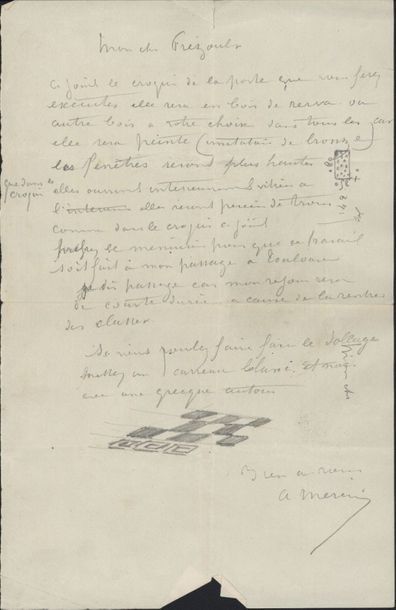 Mon cher Frézouls
ci joint le croquis de la porte que vous ferez
exécuter elle sera en bois de
autre bois a votre choix dans tous les cas
elle sera peinte (imitation de bronze)
les fenêtres seront plus hautes
que dans le
croquis
elles ouvriront
elles seront percées de trous
comme dans le croquis ci joint
le menuisier pour que ce travail
soit fait à mon passage à Toulouse
je dis passage car mon séjour sera
de courte durée a cause de la rentrée
des classes
Si vous voulez faire faire le dallage
mettez un carreau blanc et noir
avec une grecque autour
Bien a vous
A Mercié